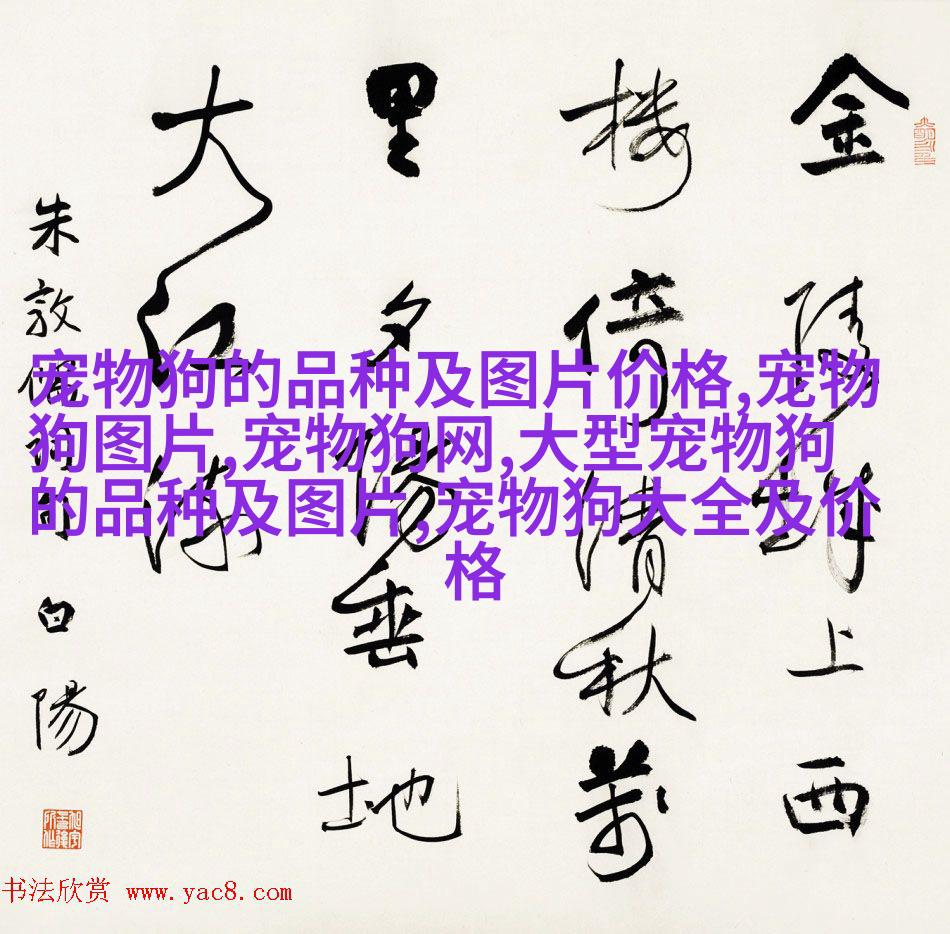 金陵城上西
楼倚清秋萬
里夕陽垂地
大江流
朱敦儒詞句 白陽
宠物狗的品种及图片价格,宠物
狗图片,宠物狗网,大型宠物狗
的品种及图片,宠物狗大全及价
格
书法欣赏 www.yac8.com